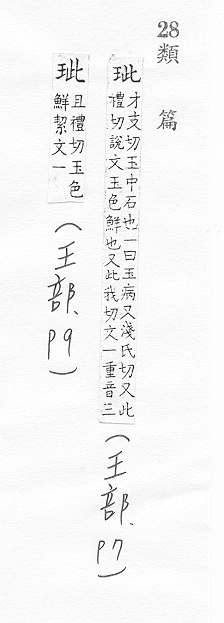 28 類篇
玼 才支切玉中石也一曰玉病又淺氏切又此
禮切說文玉色鮮也又此我切文一重音三
(王部、p7)
玼 且禮切玉色
鮮絜文一
(王部、p9)